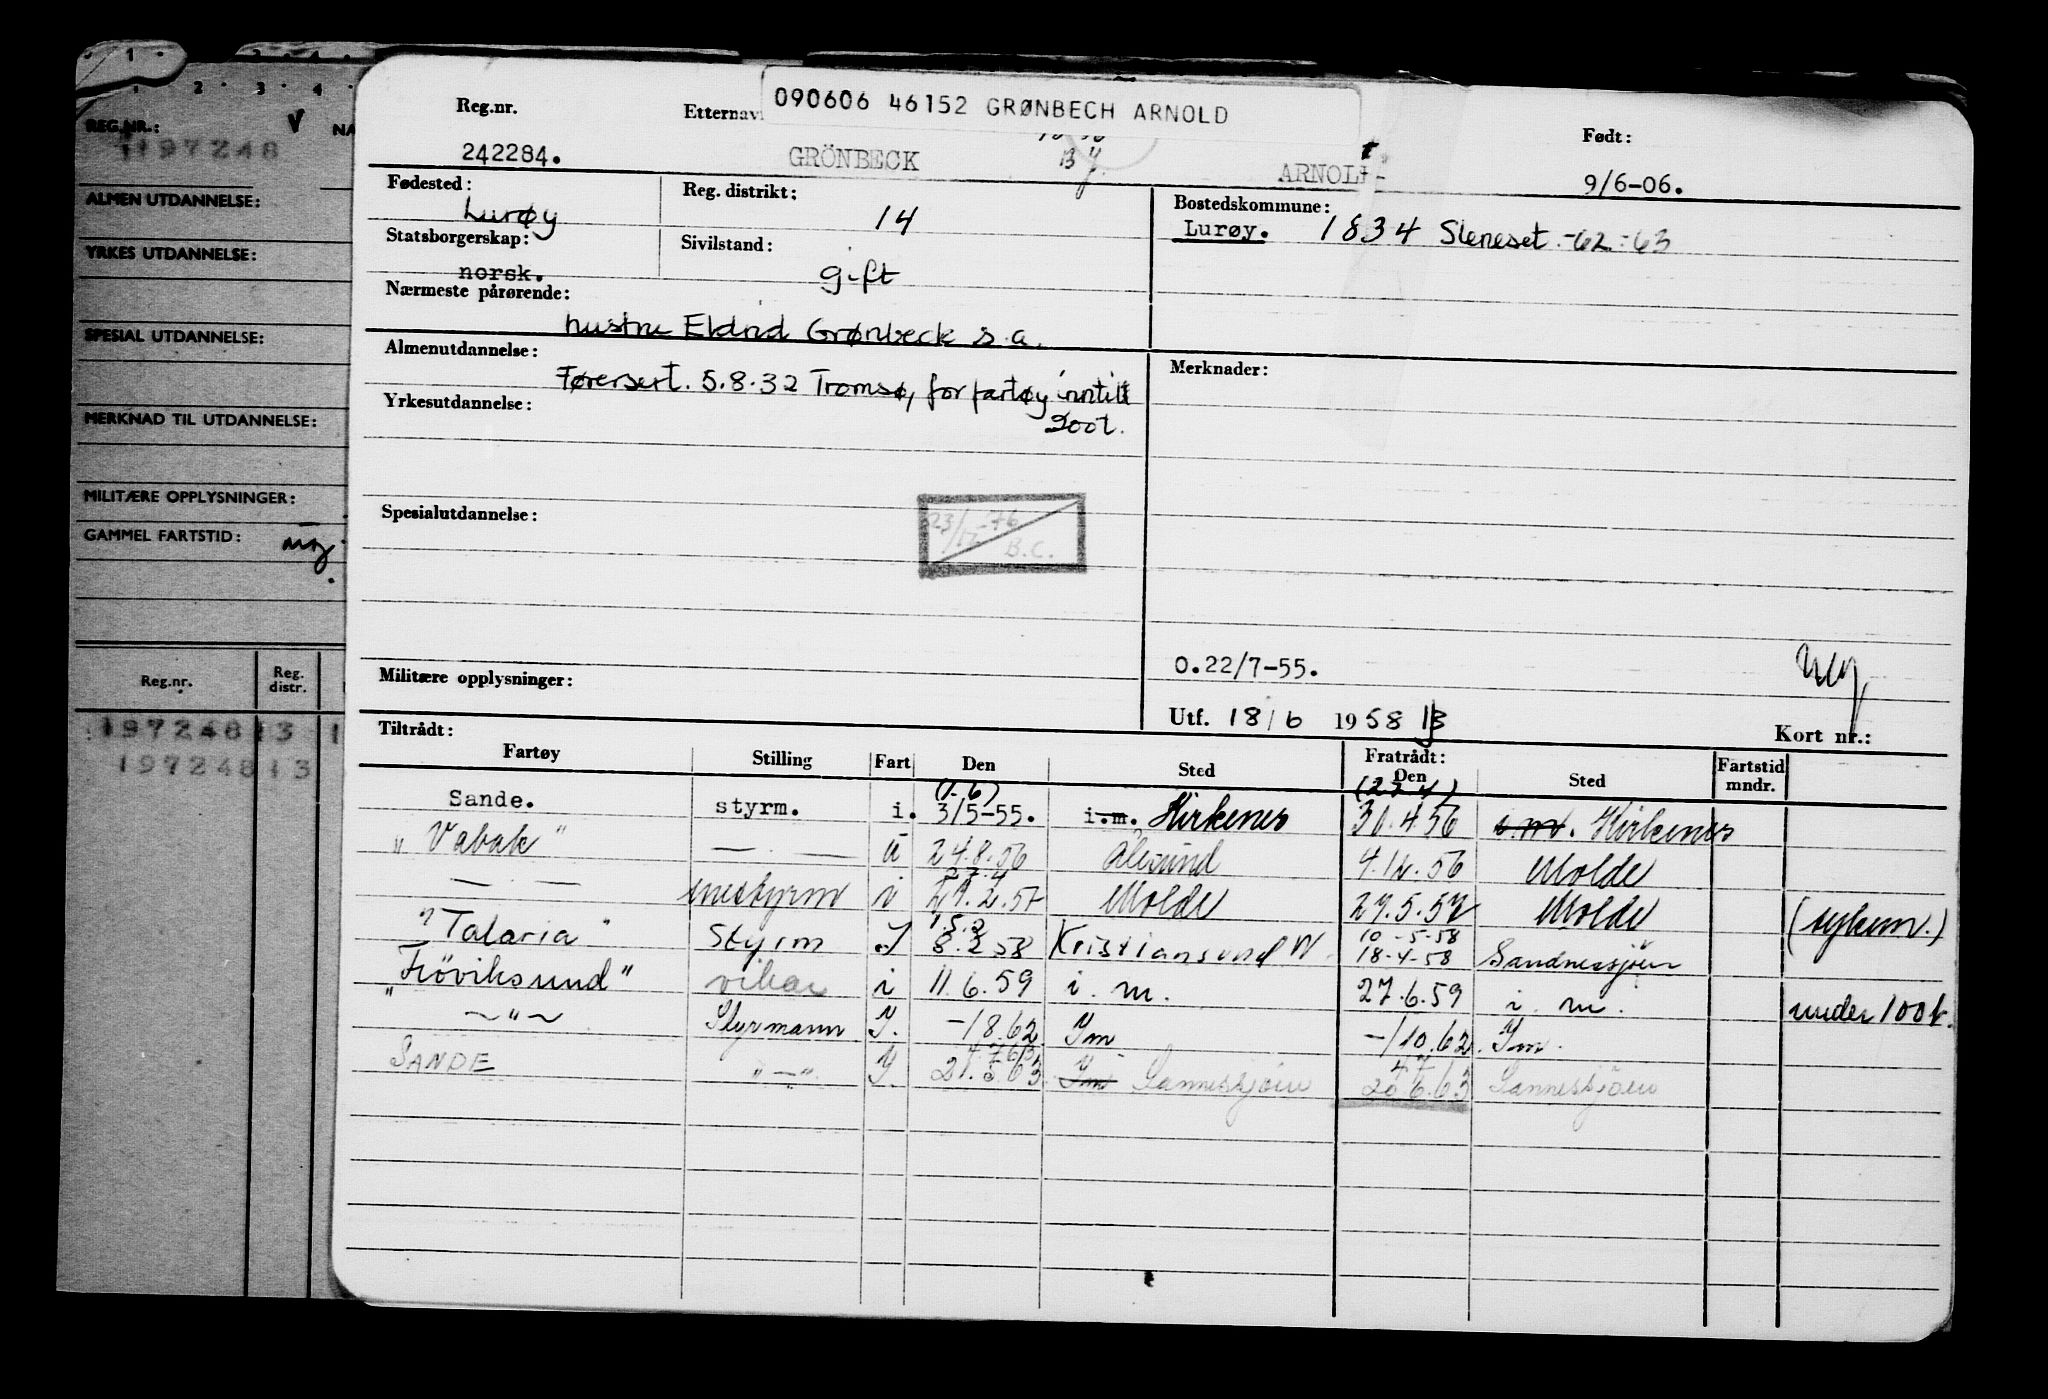 1 2 3 4
1 2 3 4
REG.NR.: V NA
1197248
ALMEN UTDANNELSE:
YRKES UTDANNELSE:
SPESIAL UTDANNELSE:
MERKNAD TIL UTDANNELSE:
MILITÆRE OPPLYSNINGER:
GAMMEL FARTSTID:
Reg.nr. Reg. distr.
19724813 1
19724813
090606 46152 GRØNBECH ARNOLD
Reg.nr. Etternavn Født:
242284. GRÖNBECK ARNOLD 9/6-06.
Fødested: Reg. distrikt: Bostedskommune:
Lurøy 14 Lurøy. 1834 Sleneset -62-63
Statsborgerskap: Sivilstand:
norsk. gift
Nærmeste pårørende:
hustru Eldrid Grønbeck s.a.
Almenutdannelse: Merknader:
Førersert. 5.8.32 Tromsø, for fartøy inntil
Yrkesutdannelse: 200t.
23/12-76 B.C.
Spesialutdannelse:
O.22/7-55.
Militære opplysninger:
Utf. 18/6 1958 Kort nr.:
Tiltrådt: Fratrådt:
Fartøy Stilling Fart Den Sted Den Sted Fartstid mndr.
(1.6) (27.4)
Sande. styrm. i. 3/5-55. i.m. Kirkenes 30.4.56 i.m. Kirkenes
"Vabak" — — u 24.8.56 Ålesund 4.12.56 Molde
27.4
— — i 29.2.57 Molde 29.5.57 Molde (sykem.)
1.5.2 10-5-58
"Talaria" Styrm I 8.2.58 Kristiansund N. 18-4-58 Sandnessjøen
"Fröviksund" vikar i 11.6.59 i.m. 27.6.59 i.m. under 100t.
—"— Styrmann I. -/8.62 Im -/10.62 Im.
4.7
SANDE "—" I. 21.5.63 Im Sanneskjøen 20.6.63 Sanneskjøen